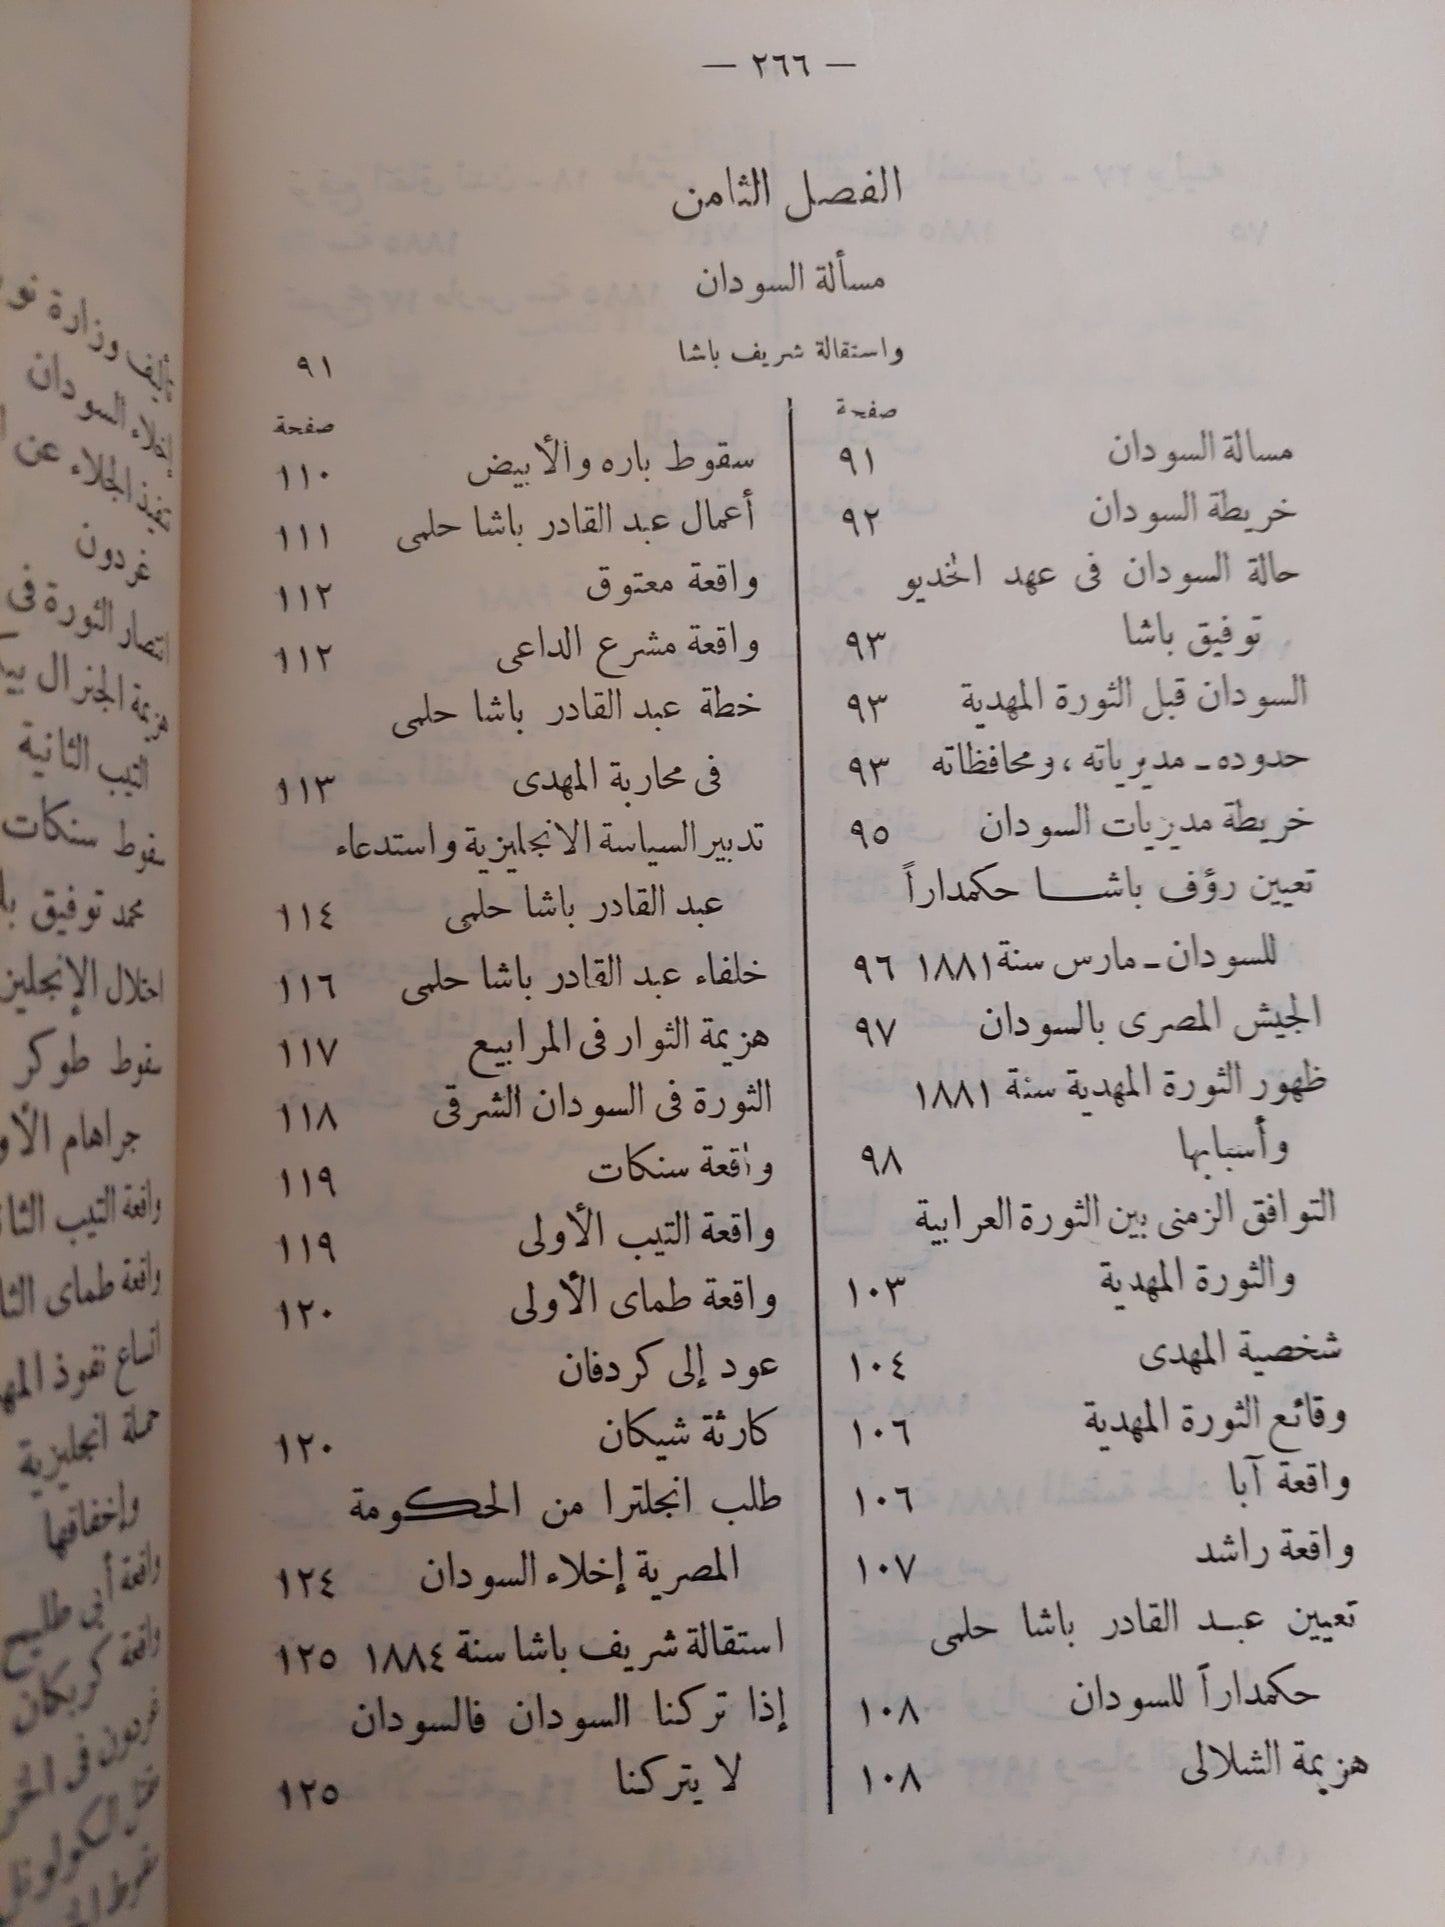 — ٢٦٦ —
الفصل الثامن
مسألة السودان
واستقالة شريف باشا ٩١
صفحة
مسالة السودان ٩١
خريطة السودان ٩٢
حالة السودان فى عهد الخديو
توفيق باشا ٩٣
السودان قبل الثورة المهدية ٩٣
حدوده ـ مديرياته ، ومحافظاته ٩٣
خريطة مديريات السودان ٩٥
تعيين رؤف باشا حكمداراً
للسودان ـ مارس سنة ١٨٨١ ٩٦
الجيش المصرى بالسودان ٩٧
ظهور الثورة المهدية سنة ١٨٨١
وأسبابها ٩٨
التوافق الزمنى بين الثورة العرابية
والثورة المهدية ١٠٣
شخصية المهدى ١٠٤
وقائع الثورة المهدية ١٠٦
واقعة آبا ١٠٦
واقعة راشد ١٠٧
تعيين عبد القادر باشا حلمى
حكمداراً للسودان ١٠٨
هزيمة الشلالى ١٠٨
صفحة
سقوط باره والأبيض ١١٠
أعمال عبد القادر باشا حلمى ١١١
واقعة معتوق ١١٢
واقعة مشرع الداعى ١١٢
خطة عبد القادر باشا حلمى
فى محاربة المهدى ١١٣
تدبير السياسة الانجليزية واستدعاء
عبد القادر باشا حلمى ١١٤
خلفاء عبد القادر باشا حلمى ١١٦
هزيمة الثوار فى المرابيع ١١٧
الثورة فى السودان الشرقى ١١٨
واقعة سنكات ١١٩
واقعة التيب الأولى ١١٩
واقعة طماى الأولى ١٢٠
عود إلى كردفان
كارثة شيكان ١٢٠
طلب انجلترا من الحكومة
المصرية إخلاء السودان ١٢٤
استقالة شريف باشا سنة ١٨٨٤ ١٢٥
إذا تركنا السودان فالسودان
لا يتركنا ١٢٥
تأليف وزارة
إخلاء السودان
تنفيذ الجلاء عن
غردون
انتصار الثورة فى
هزيمة الجنرال
التيب الثانية
سقوط سنكات
محمد توفيق
سقوط طوكر
جراهام
واقعة التيب
واقعة طماى
اتساع نفوذ
حملة انجليزية
وإخفاقها
واقعة أبى طليح
واقعة كربكان
غردون فى